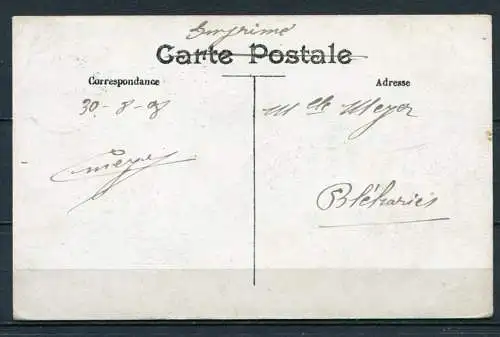 Imprimé
Carte Postale
Correspondance
Adresse
30-8-08
Mlle Meyer
Bléharies